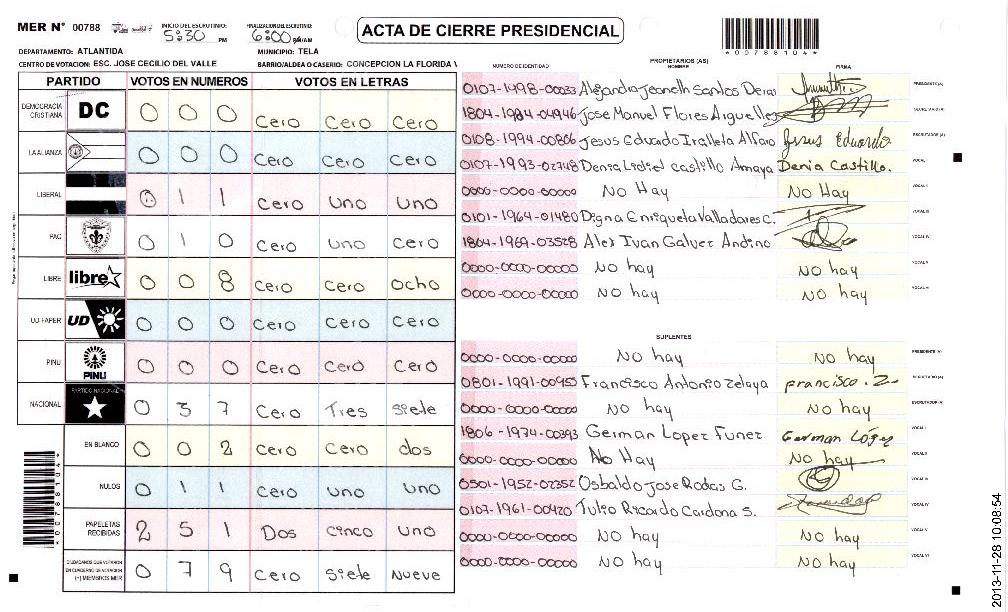 MER N° 00788 INICIO DEL ESCRUTINIO: 5:30 PM FINALIZACION DEL ESCRUTINIO: 6:00 PM/AM
ACTA DE CIERRE PRESIDENCIAL
*00788104*
DEPARTAMENTO: ATLANTIDA MUNICIPIO: TELA
CENTRO DE VOTACION: ESC. JOSE CECILIO DEL VALLE BARRIO/ALDEA O CASERIO: CONCEPCION LA FLORIDA
PARTIDO VOTOS EN NUMEROS VOTOS EN LETRAS
DEMOCRACIA CRISTIANA DC 0 0 0 Cero Cero Cero
LA ALIANZA 0 0 0 Cero Cero Cero
LIBERAL 0 1 1 Cero uno uno
PAC 0 1 0 Cero uno Cero
LIBRE libre 0 0 8 Cero Cero ocho
UD-FAPER UD 0 0 0 Cero Cero Cero
PINU PINU 0 0 0 Cero Cero Cero
NACIONAL PARTIDO NACIONAL 0 3 7 Cero Tres siete
EN BLANCO 0 0 2 Cero Cero dos
NULOS 0 1 1 Cero uno uno
PAPELETAS RECIBIDAS 2 5 1 Dos cinco uno
CIUDADANOS QUE VOTARON EN CUADERNO DE VOTACION (+) MIEMBROS MER 0 7 9 Cero Siete Nueve
*00788104*
PROPIETARIOS (AS)
NUMERO DE IDENTIDAD NOMBRE FIRMA
0107-1498-00033 Alejandra Jeaneth Santos Deras PRESIDENTE(A)
1804-1984-04946 Jose Manuel Flores Arguelles SECRETARIO(A)
0108-1994-00806 Jesus Eduado Iralleta Alfaro Jesus Eduardo ESCRUTADOR (A)
0107-1993-02748 Denia Lidiel Castillo Amaya Denia Castillo. VOCAL I
0000-0000-00000 No Hay No Hay VOCAL II
0101-1964-01480 Digna Enriqueta Valladares C. VOCAL III
1804-1969-03528 Alex Ivan Galvez Andino VOCAL IV
0000-0000-00000 No hay No hay VOCAL V
0000-0000-00000 No hay No hay VOCAL VI
SUPLENTES
0000-0000-00000 No hay No hay PRESIDENTE (A)
0801-1991-00950 Francisco Antonio Zelaya francisco. Z SECRETARIO(A)
0000-0000-00000 No hay No hay ESCRUTADOR (A)
1806-1974-00393 German Lopez Funez German López VOCAL I
0000-0000-00000 No Hay No hay VOCAL II
0501-1952-02352 Osbaldo Jose Rodas G. VOCAL III
0107-1961-00420 Tulio Ricardo Cardona S. VOCAL IV
0000-0000-00000 No hay No hay VOCAL V
0000-0000-00000 No hay No hay VOCAL VI
2013-11-28 10:08:54